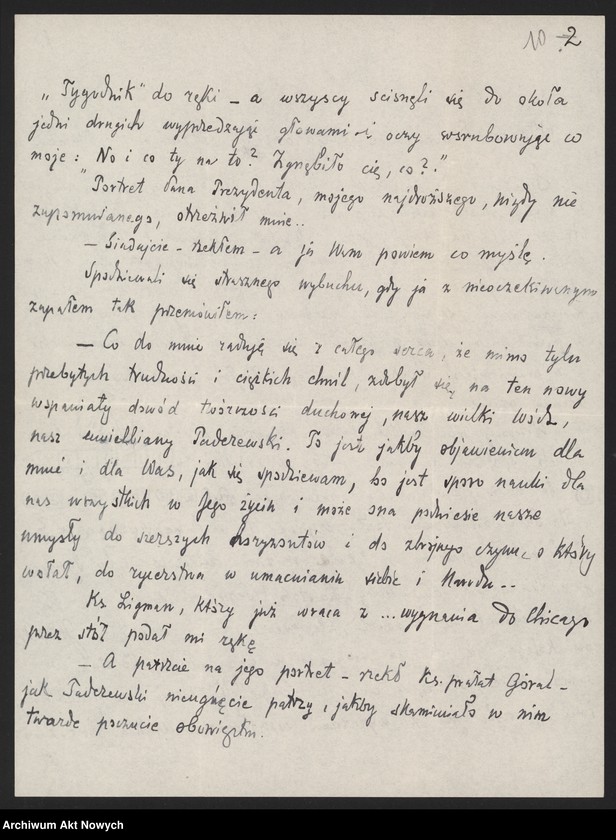 10 2
„Tygodnik" do ręki – a wszyscy scisnęli się do około
jedni drugich wyprzedzając głowami i oczy wsrubowując co
moje: No i co ty na to? Zgnębiło cię, co?"
"Portret Pana Prezydenta, mojego najdroższego, nigdy nie
zapomnianego, otrzeźwił mnie..
– Siadajcie – rzekłem – a ja Wam powiem co myślę.
Spodziewali się strasznego wybuchu, gdy ja z nieoczekiwanym
zapałem tak przemówiłem:
– Co do mnie raduję się z całego serca, że mimo tylu
przebytych trudności i ciężkich chwil, zdobył się na ten nowy
wspaniały dowód twórczości duchowej, nasz wielki Wódz,
nasz uwielbiany Paderewski. To jest jakby objawieniem dla
mnie i dla Was, jak się spodziewam, bo jest sporo nauki dla
nas wszystkich w Jego życiu i może ona podniesie nasze
umysły do szerszych horyzontów i do zbrojnego czynu, o który
wołał, do rycerstwa w umacnianiu siebie i Narodu..
Ks Ligman, który już wraca z ... wygnania do Chicago
przez stół podał mi rękę
– A patrzcie na jego portret – rzekł Ks. prałat Góral –
jak Paderewski nieugięcie patrzy, jakby skamieniało w nim
twarde poczucie obowiązku.
Archiwum Akt Nowych